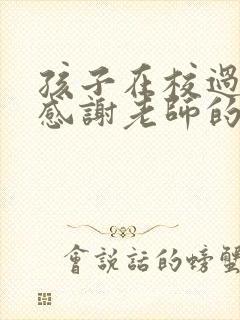 孩子在校過
感謝老師的
會說話的螃蟹